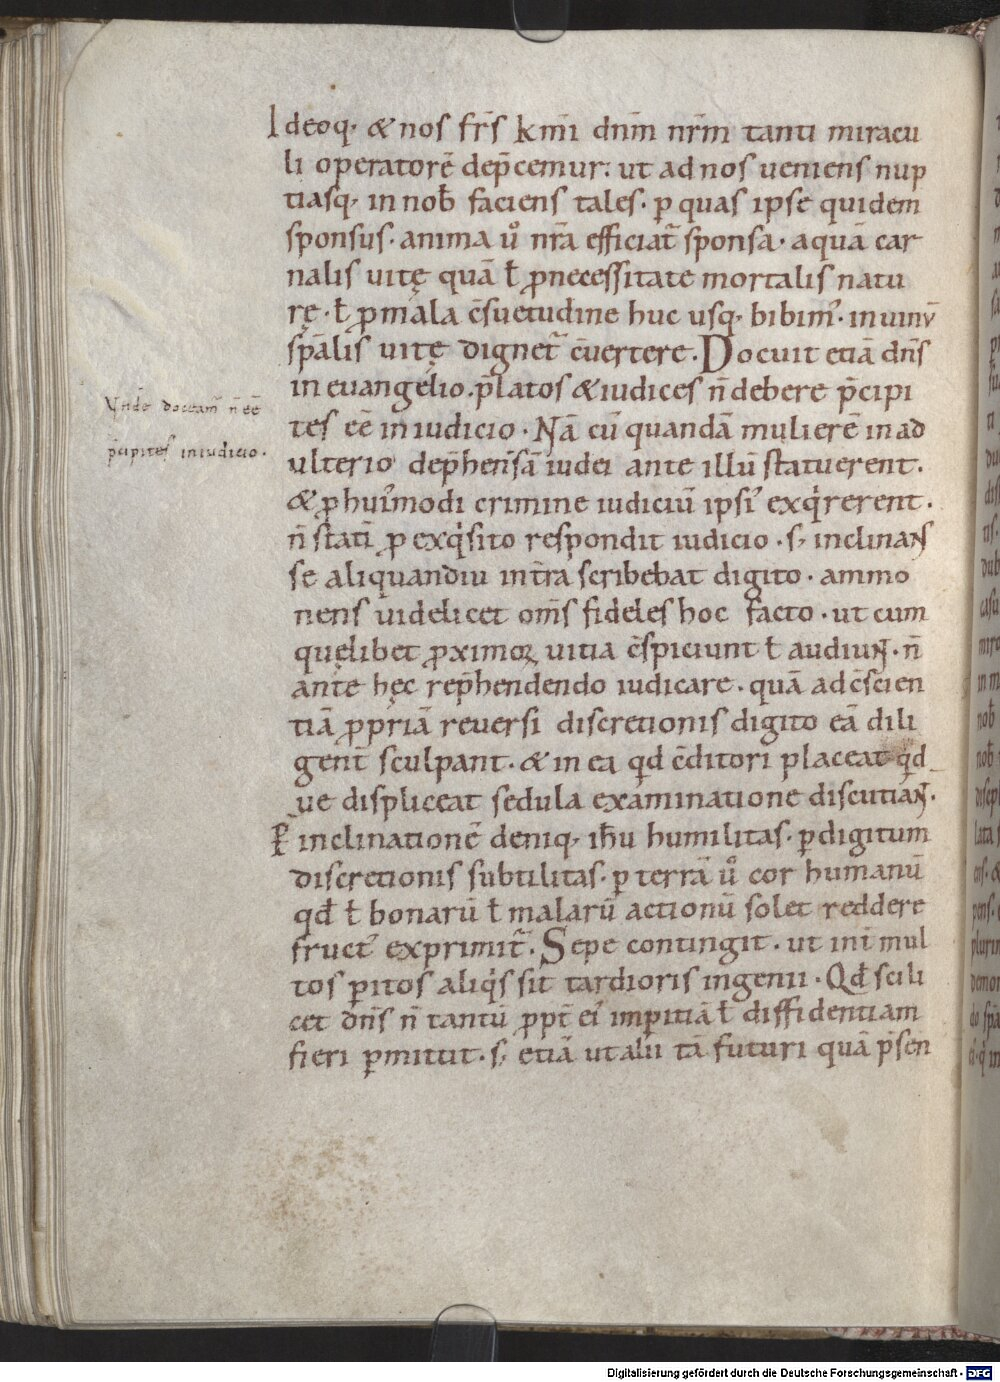 Ideoq; & nos fr̄s k̄mi dn̄m nr̄m tanti miracu
li operatorē dep̄cemur: ut ad nos ueniens nup
tiasq; in nob̄ faciens tales· ꝑ quas ipse quidem
sponsus· anima ůo nr̄a efficiat̄ sponsa· aquā car
nalis uitę quā ł ꝓ necessitate mortalis natu
rę· ł ꝓ mala c̄suetudine huc usq; bibim᾽· in uinū
sp̄alis uitę dignet̄ c̄uertere. Docuit etiā dn̄s
in euangelio. p̄latos & iudices n̄ debere p̄cipi
Vnde doceam᾽ n̄ eē
p̄cipites in iudicio·
tes eē in iudicio· Nā cū quandā mulierē in ad
ulterio dep̄hensā iudei ante illū statuerent.
& ꝓ hui᾽modi crimine iudiciū ipsi᾽ exqͥrerent.
n̄ stati ̄ ꝓ exqͥsito respondit iudicio· s; inclinans
se aliquandiu in tr̄a scribebat digito· ammo
nens uidelicet om̄s fideles hoc facto· ut cum
quęlibet ꝓximoꝝ uitia c̄spiciunt ł audiunt· n̄
ante hęc rep̄hendendo iudicare· quā ad c̄scien
tiā ꝓpriā reuersi discretionis digito eā dili
gent̄ sculpant· & in ea qd c̄ditori placeat qd
ue displiceat sedula examinatione discutiant·
Ꝑ inclinationē deniq; ih̄u humilitas· ꝑ digitum
discretionis subtilitas· ꝑ terrā ůo cor humanū
qđ ł bonarū ł malarū actionū solet reddere
fruct᾽ exprimit̄. Sepe contingit· ut int̄ mul
tos ꝑitos aliqͥs sit tardioris ingenii· Qđ scili
cet dn̄s n̄ tantū ꝓpt̄ ei᾽ imꝑitiā ł diffidentiam
fieri ꝑmittit· s; etiā ut alii tā futuri quā p̄sen
Digitalisierung gefördert durch die Deutsche Forschungsgemeinschaft - DFG